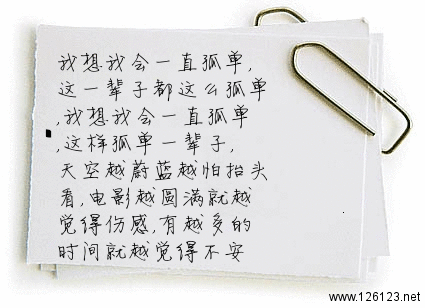 我想我会一直孤单,
这一辈子都这么孤单
,我想我会一直孤单
,这样孤单一辈子,
天空越蔚蓝越怕抬头
看,电影越圆满就越
觉得伤感,有越多的
时间就越觉得不安
www.126123.net